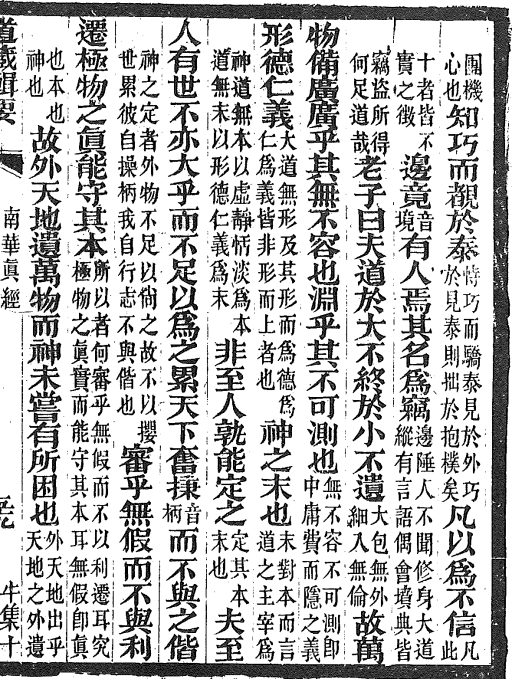 團機心也知巧而覩於泰恃巧而驕泰見於外巧於見泰則拙於抱樸矣凡以爲不信凡此
十者皆不實之徵邊竟音境有人焉其名爲竊邊陲人不聞修身大道縱有言語偶會墳典皆
竊盜所得何足道哉老子曰夫道於大不終於小不遺大包無外細入無倫故萬
物備廣廣乎其無不容也淵乎其不可測也無不容不可測即中庸費而隱之義
形德仁義大道無形及其形而爲德爲仁爲義皆非形而上者也神之末也末對本而言道之主宰爲
神道無本以虛靜恬淡爲本道無末以形德仁義爲末非至人孰能定之定其本末夫至
人有世不亦大乎而不足以爲之累天下奮棅音柄而不與之偕
神之定者外物不足以倘之故不以攖世累彼自操柄我自行志不與偕也審乎無假而不與利
遷極物之眞能守其本所以者何審乎無假而不以利遷耳究極物之眞實而能守其本耳無假即眞
也本也神也故外天地遺萬物而神未嘗有所困也外天地出乎天地之外遺
道藏輯要
南華眞經
牛集十